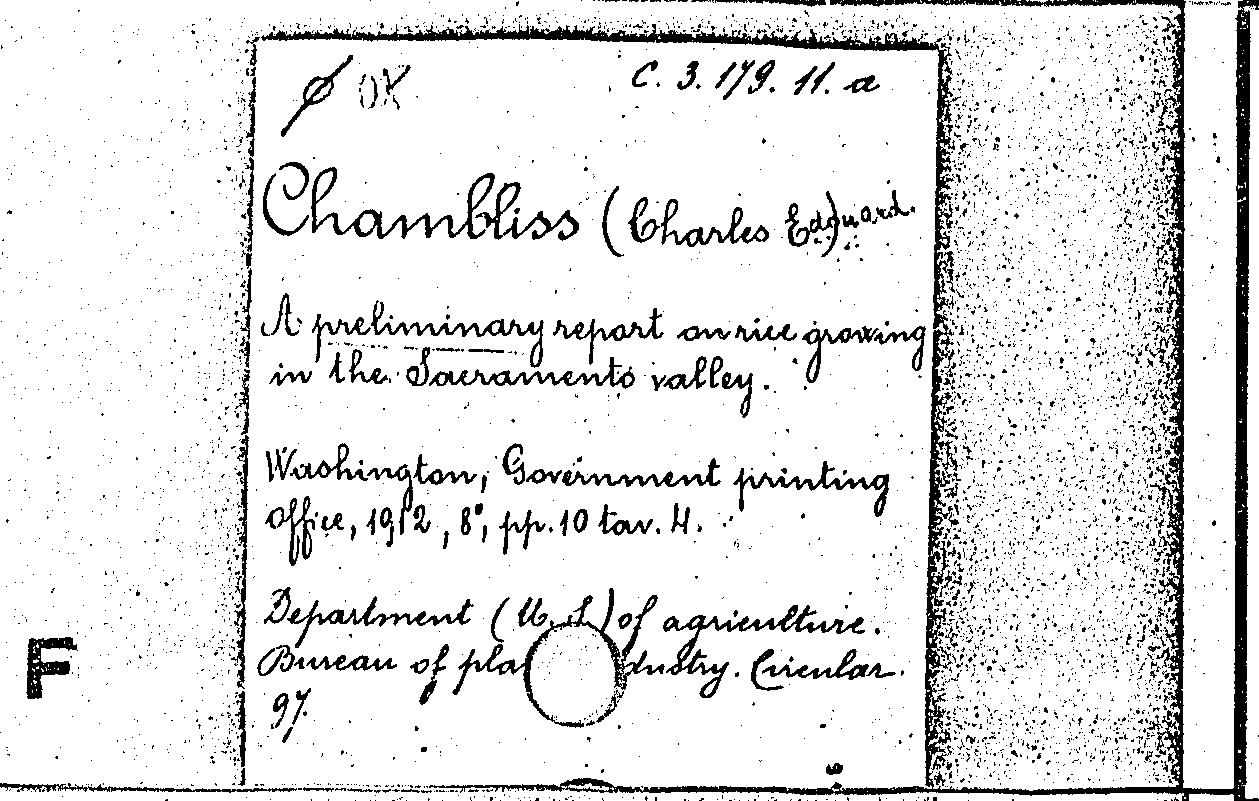 ø OX C. 3. 179. 11. a
Chambliss (Charles Edouard.)
A preliminary report on rice growing
in the Sacramento valley.
Washington, Government printing
office, 1912, 8°, pp. 10 tav. 4.
Department (U. S.) of agriculture.
Bureau of pla dustry. Circular.
97.
F